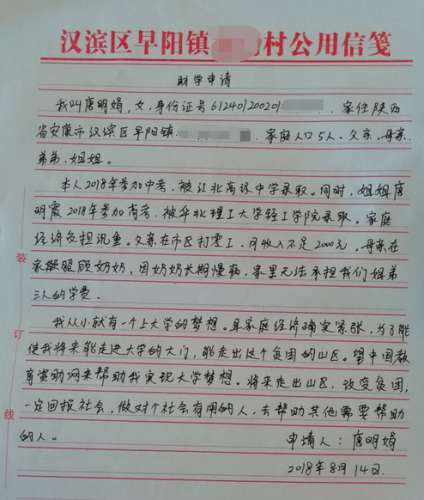 汉滨区早阳镇 村公用信笺
助学申请
我叫唐明娟,女,身份证号61240120020 家住陕西
省安康市汉滨区早阳镇 家庭人口5人、父亲、母亲、
弟弟、姐姐。
本人2018年参加中考,被江北高级中学录取。同时,姐姐唐
明霞2018年参加高考,被华北理工大学轻工学院录取。家庭
经济负担沉重。父亲在市区打零工,月收入不足2000元,母亲在
家照顾奶奶,因奶奶长期慢病,家里无法承担我们姐弟
三人的学费。
我从小就有一个上大学的梦想。但家庭经济确实紧张,为了能
使我将来能走进大学的大门,能走出这个贫困的山区。望中国教
育资助网来帮助我实现大学梦想。将来走出山区,改变贫困,
一定回报社会,做对个社会有用的人,去帮助其他需要帮助
的人。
申请人:唐明娟
2018年8月14日.
装
订
线